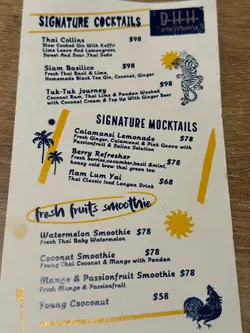 SIGNATURE COCKTAILS
Thai Collins $98
Slow Cooked Gin With Kaffir
Lime Leave And Lemongrass,
Sweet And Sour Thai Soda
Siam Basilico $98
Fresh Thai Basil & Lime,
Homemade Blank Tea Gin, Coconut, Ginger
Tuk-Tuk Journey $98
Coconut Rum, Thai Lime & Pandan Washed
with Coconut Cream & Top Up With Ginger Beer
SIGNATURE MOCKTAILS
Calamansi Lemonade $78
Fresh Ginger, Calamansi & Pink Guava with
Passionfruit & Saline Solution
Berry Refresher $78
Fresh berries,cucumber,basil &mint,
honey cold brew thai green tea
Nam Lum Yai $68
Thai Classic Iced Longan Drink
fresh fruits smoothie
Watermelon Smoothie $78
Fresh Thai Baby Watermelon
Coconut Smoothie $78
Young Thai Coconut & Mango with Pandan
Mango & Passionfruit Smoothie $78
Fresh Mango & Passionfruit
Young Cocconut $58